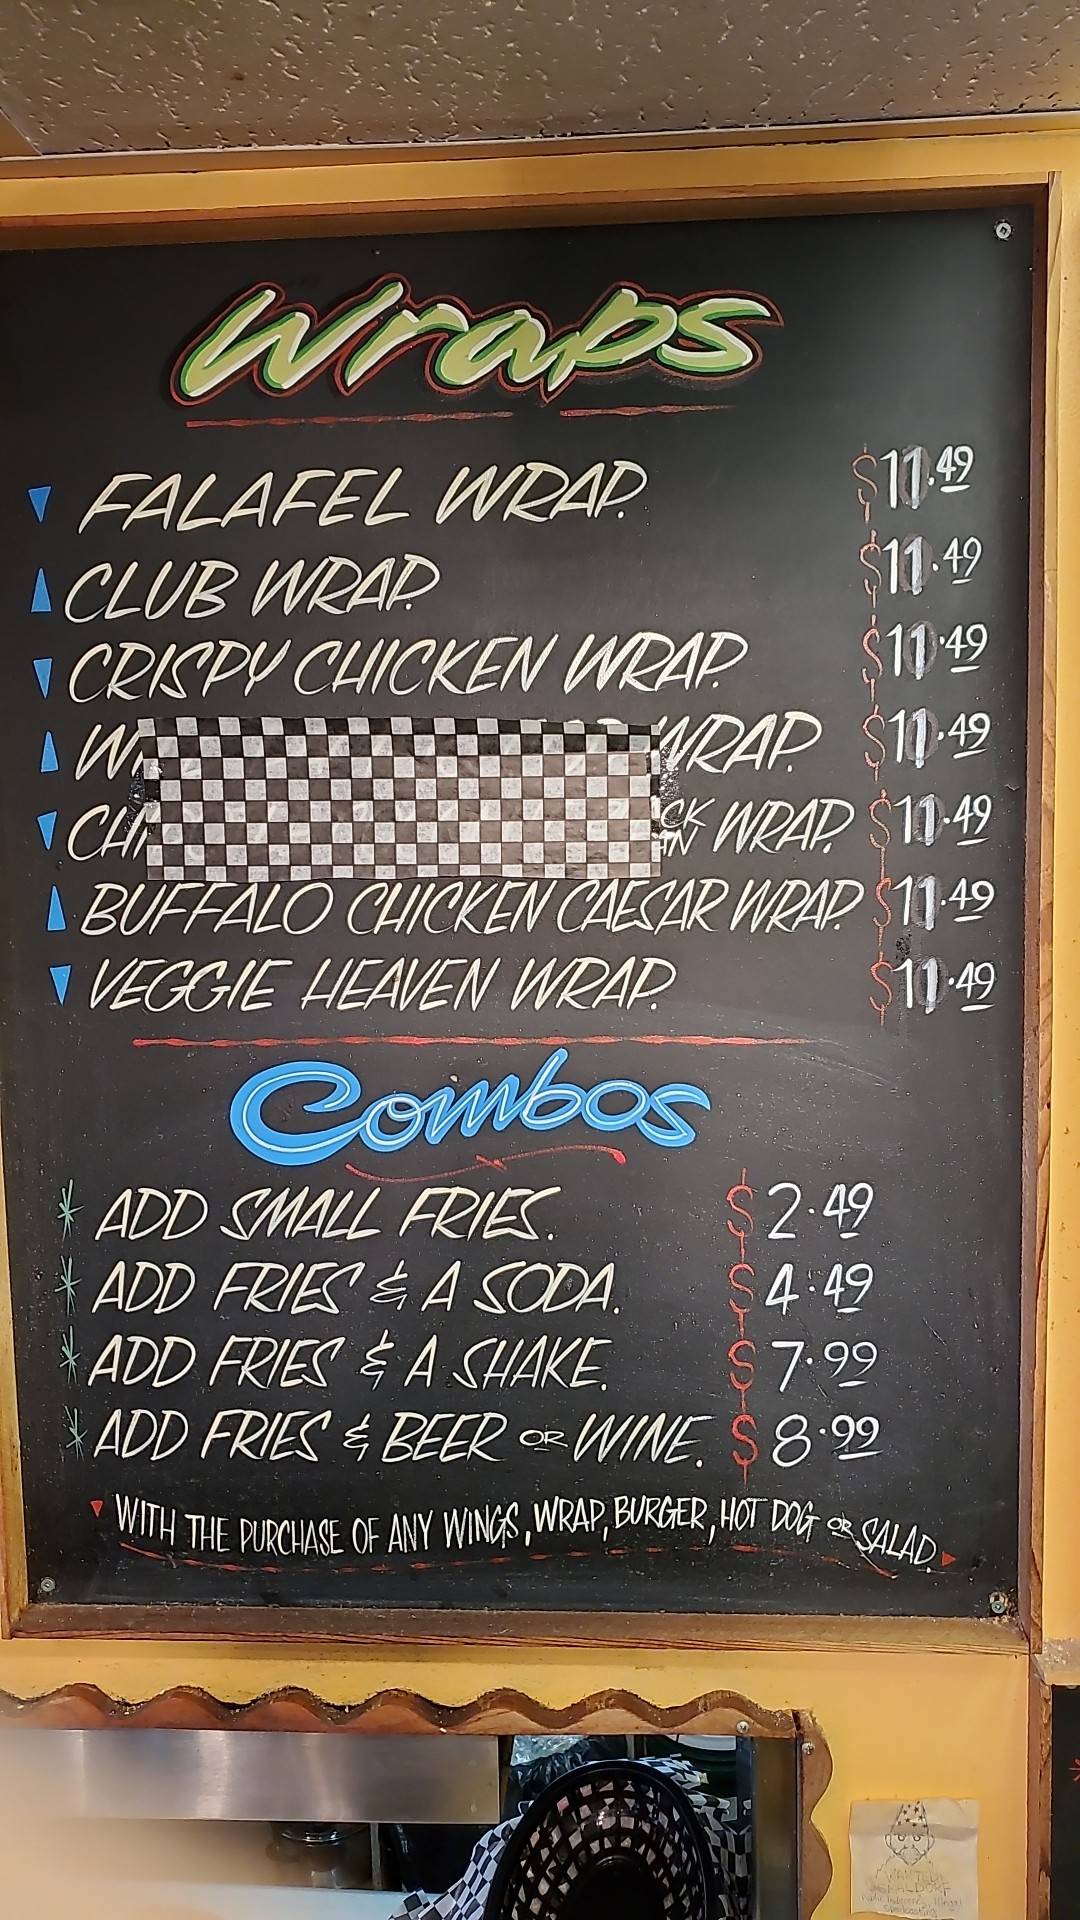 Wraps
FALAFEL WRAP. $11.49
CLUB WRAP. $11.49
CRISPY CHICKEN WRAP. $11.49
WRAP. $11.49
WRAP. $11.49
BUFFALO CHICKEN CAESAR WRAP. $11.49
VEGGIE HEAVEN WRAP. $11.49
Combos
ADD SMALL FRIES. $2.49
ADD FRIES & A SODA. $4.49
ADD FRIES & A SHAKE. $7.99
ADD FRIES & BEER OR WINE. $8.99
WITH THE PURCHASE OF ANY WINGS, WRAP, BURGER, HOT DOG OR SALAD.
WANTED